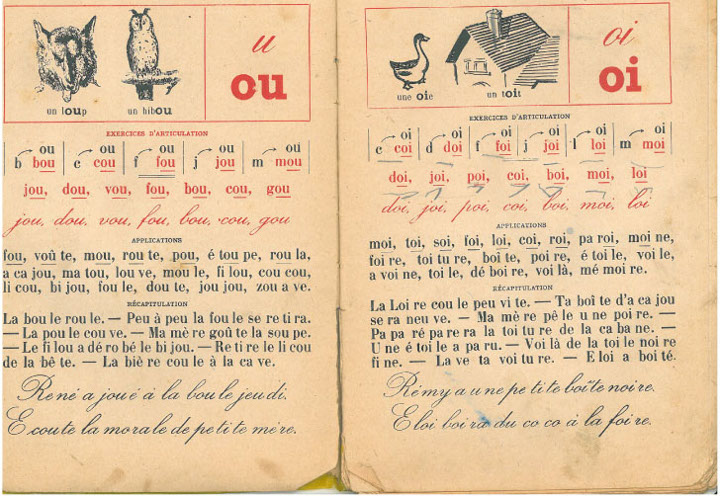 u
ou
un loup
un hibou
EXERCICES D'ARTICULATION
ou ou ou ou ou
b bou c cou f fou j jou m mou
jou, dou, vou, fou, bou, cou, gou
jou, dou, vou, fou, bou, cou, gou
APPLICATIONS
fou, voû te, mou, rou te, pou, é tou pe, rou la,
a ca jou, ma tou, lou ve, mou le, fi lou, cou cou,
li cou, bi jou, fou le, dou te, jou jou, zou a ve.
RÉCAPITULATION
La bou le rou le. — Peu à peu la fou le se re ti ra.
— La pou le cou ve. — Ma mè re goû te la sou pe.
— Le fi lou a dé ro bé le bi jou. — Re ti re le li cou
de la bê te. — La biè re cou le à la ca ve.
René a joué à la bou le jeu di.
E cou te la mo ra le de pe ti te mè re.
oi
oi
une oie
un toit
EXERCICES D'ARTICULATION
oi oi oi oi oi oi
c coi d doi f foi j joi l loi m moi
doi, joi, poi, coi, boi, moi, loi
doi, joi, poi, coi, boi, moi, loi
APPLICATIONS
moi, toi, soi, foi, loi, coi, roi, pa roi, moi ne,
foi re, toi tu re, boî te, poi re, é toi le, voi le,
a voi ne, toi le, dé boi re, voi là, mé moi re.
RÉCAPITULATION
La Loi re cou le peu vi te. — Ta boî te d'a ca jou
se ra neu ve. — Ma mè re pè le u ne poi re. —
Pa pa ré pa re ra la toi tu re de la ca ba ne. —
U ne é toi le a pa ru. — Voi là de la toi le noi re
fi ne. — La ve ta voi tu re. — E loi a boi té.
Rémy a u ne pe ti te boîte noi re.
E loi boi ra du co co à la foi re.